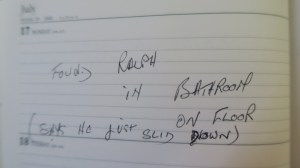 July
17
FOUND RALPH
IN BATHROOM
ON FLOOR
(SAID HE JUST SLID DOWN)
18